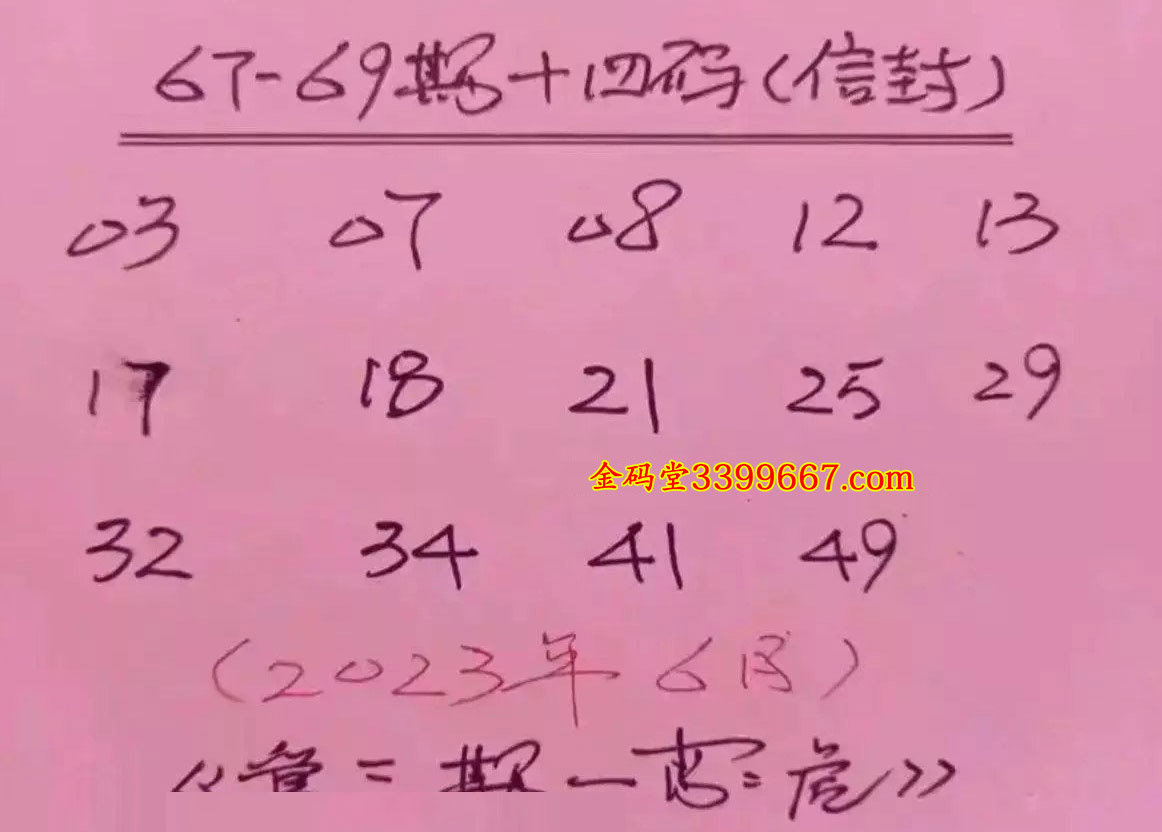 67-69期十四码(信封)
03 07 08 12 13
17 18 21 25 29
金码堂3399667.com
32 34 41 49
(2023年6月)